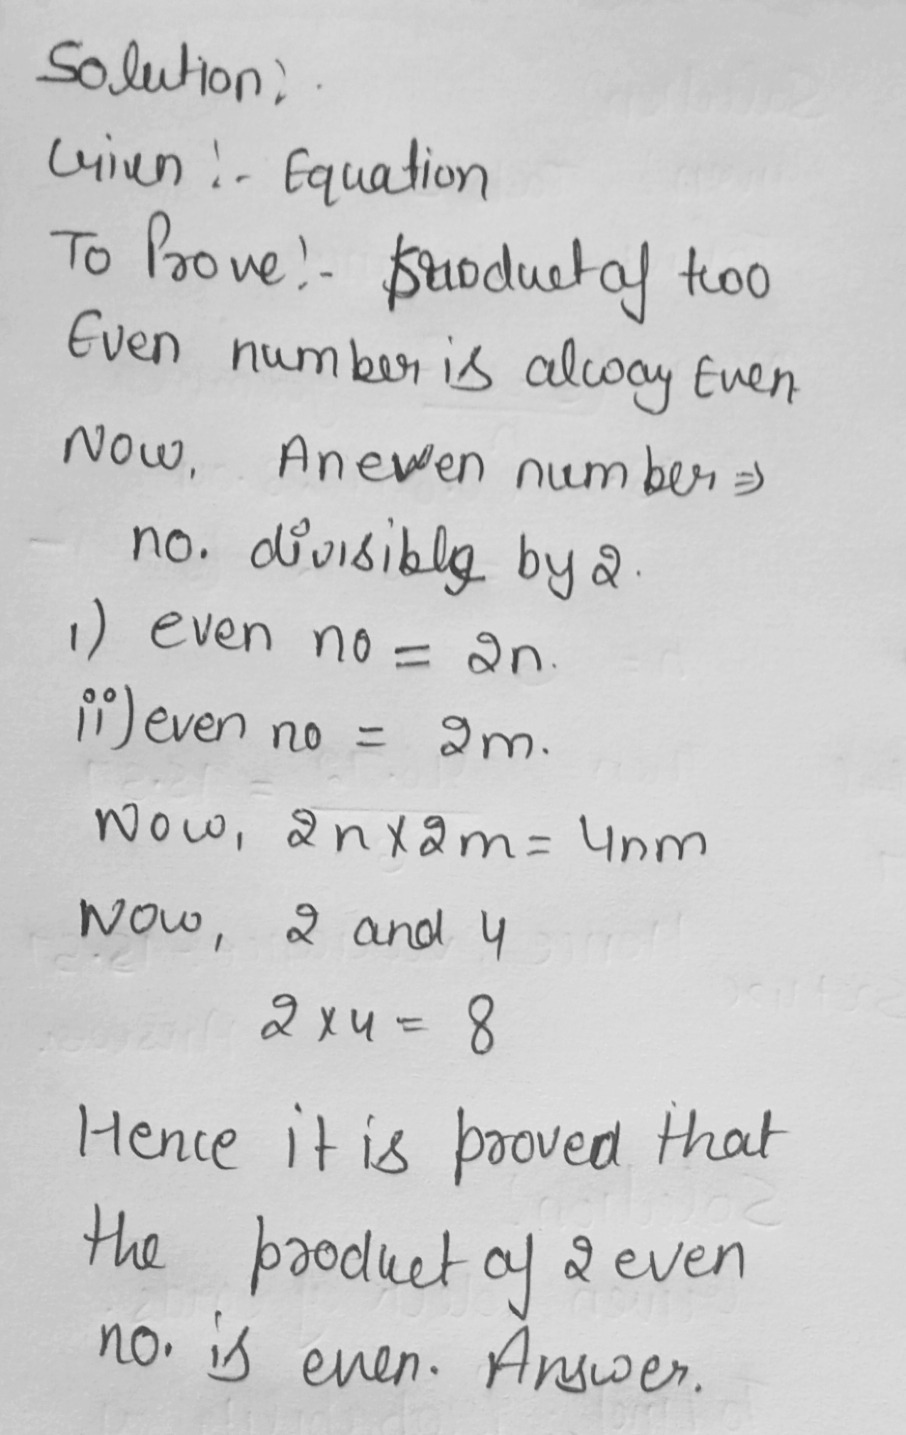 Solution:.
Given :- Equation
To Prove :- product of two
Even number is alway Even
Now, An even number ⇒
no. divisible by 2.
i) even no = 2n.
ii) even no = 2m.
Now, 2n x 2m = 4nm
Now, 2 and 4
2 x 4 = 8
Hence it is proved that
the product of 2 even
no. is even. Answer.